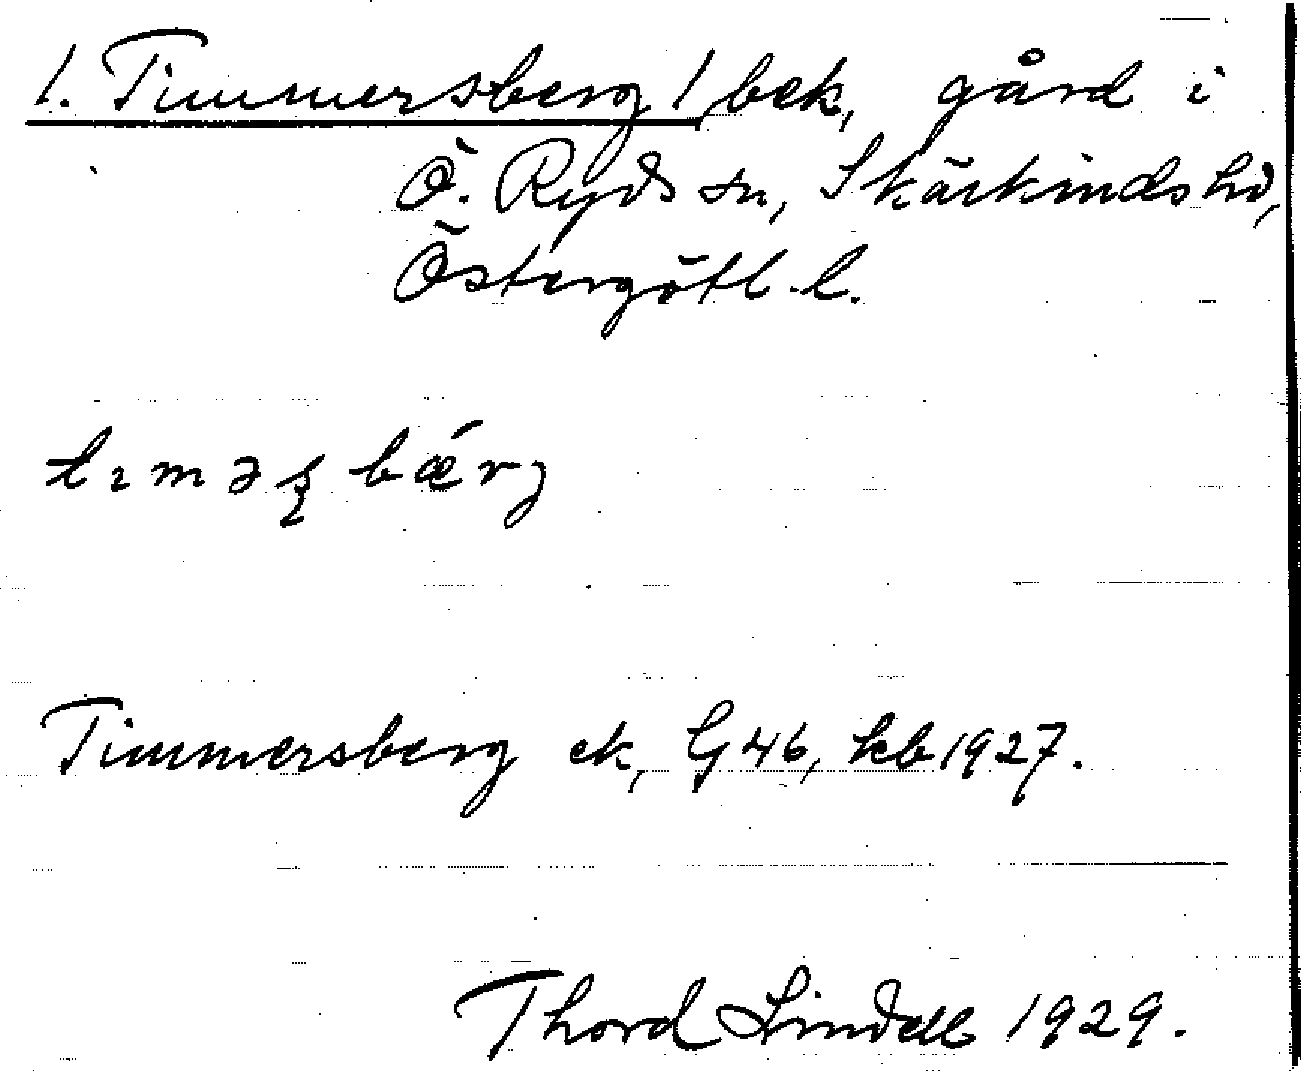 1. Timmersberg 1/bek, gård i
Ö. Ryds sn, Skärkinds hd,
Östergötl. l.
tıməʂbǽrg
Timmersberg ek, G46, kb 1927.
Thord Lindell 1929.